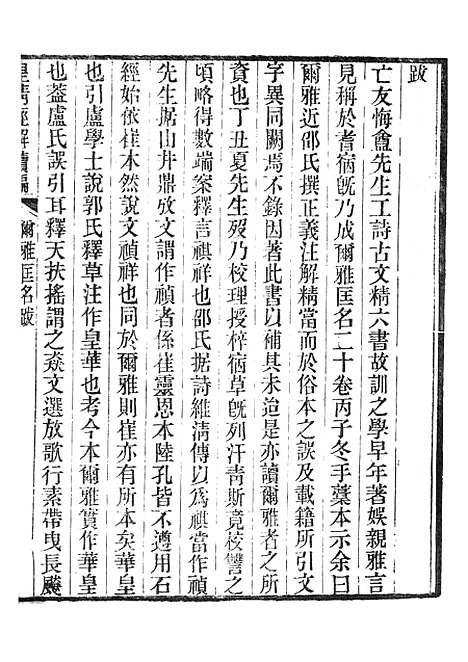 跋
亡友悔盦先生工詩古文精六書故訓之學早年著娛親雅言
見稱於耆宿旣乃成爾雅匡名二十卷丙子冬手藁本示余曰
爾雅近邵氏撰正義注解精當而於俗本之誤及載籍所引文
字異同闕焉不錄因著此書以補其未迨是亦讀爾雅者之所
資也丁丑夏先生歿乃校理授梓宿草旣列汗靑斯竟校讐之
頃略得數端案釋言祺祥也邵氏据詩維淸傳以爲祺當作禎
先生据山井鼎攷文謂作禎者係崔靈恩本陸孔皆不遵用石
經始依崔本然說文禎祥也同於爾雅則崔亦有所本矣華皇
也引盧學士說郭氏釋草注作皇華也考今本爾雅實作華皇
也葢盧氏誤引耳釋天扶搖謂之猋文選放歌行素帶曳長飇
皇淸經解續編
爾雅匡名跋